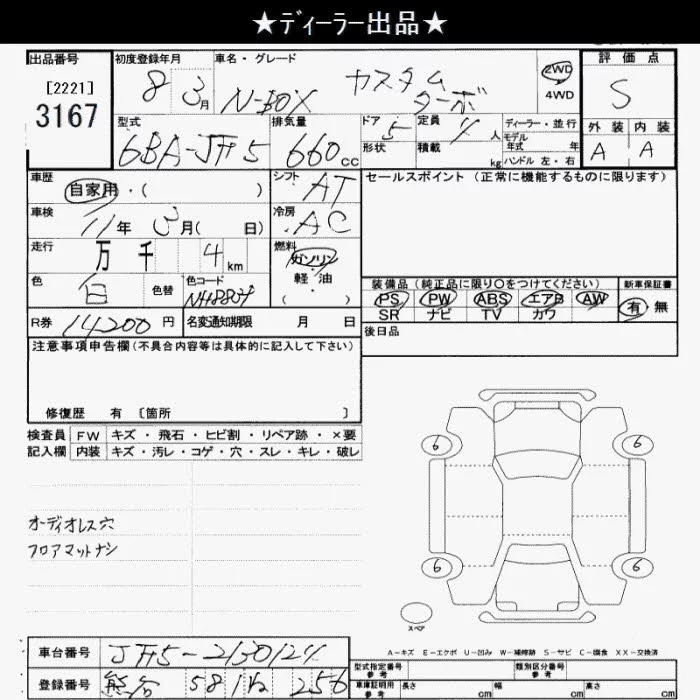 ★ディーラー出品★
出品番号 初度登録年月 車名・グレード 評価点
[2221] 8 3月 N-BOX カスタム ターボ 2WD 4WD S
3167
型式 排気量 ドア 定員 ディーラー・並行 外装 内装
6BA-JF5 660cc 5 4人 モデル年式 年 A A
形状 積載 kg ハンドル 左・右
車歴 シフト セールスポイント (正常に機能するものに限ります)
自家用・( ) AT
車検 冷房
11年 3月( 日) AC
走行 燃料
万 千 4 km ガソリン
軽・油
( )
色 色替 色コード 装備品 (純正品に限り○をつけてください) 新車保証書
白 PS PW ABS エアB AW 有 無
SR ナビ TV カワ
R券 14200円 名変通知期限 月 日 後日品
注意事項申告欄 (不具合内容等は具体的に記入して下さい)
修復歴 有 [箇所 ]
検査員 FW キズ・飛石・ヒビ割・リペア跡・×要
記入欄 内装 キズ・汚レ・コゲ・穴・スレ・キレ・破レ
6 6
オーディオレス穴
フロアマットナシ
6 6
スペア
A-キズ E-エクボ U-凹み W-補修跡 S-サビ C-腐食 XX-交換済
車台番号 JF5-2130124 型式指定番号 参考 類別区分番号 参考
登録番号 581 256 車庫証明用 参考 長さ cm 幅 cm 高さ cm